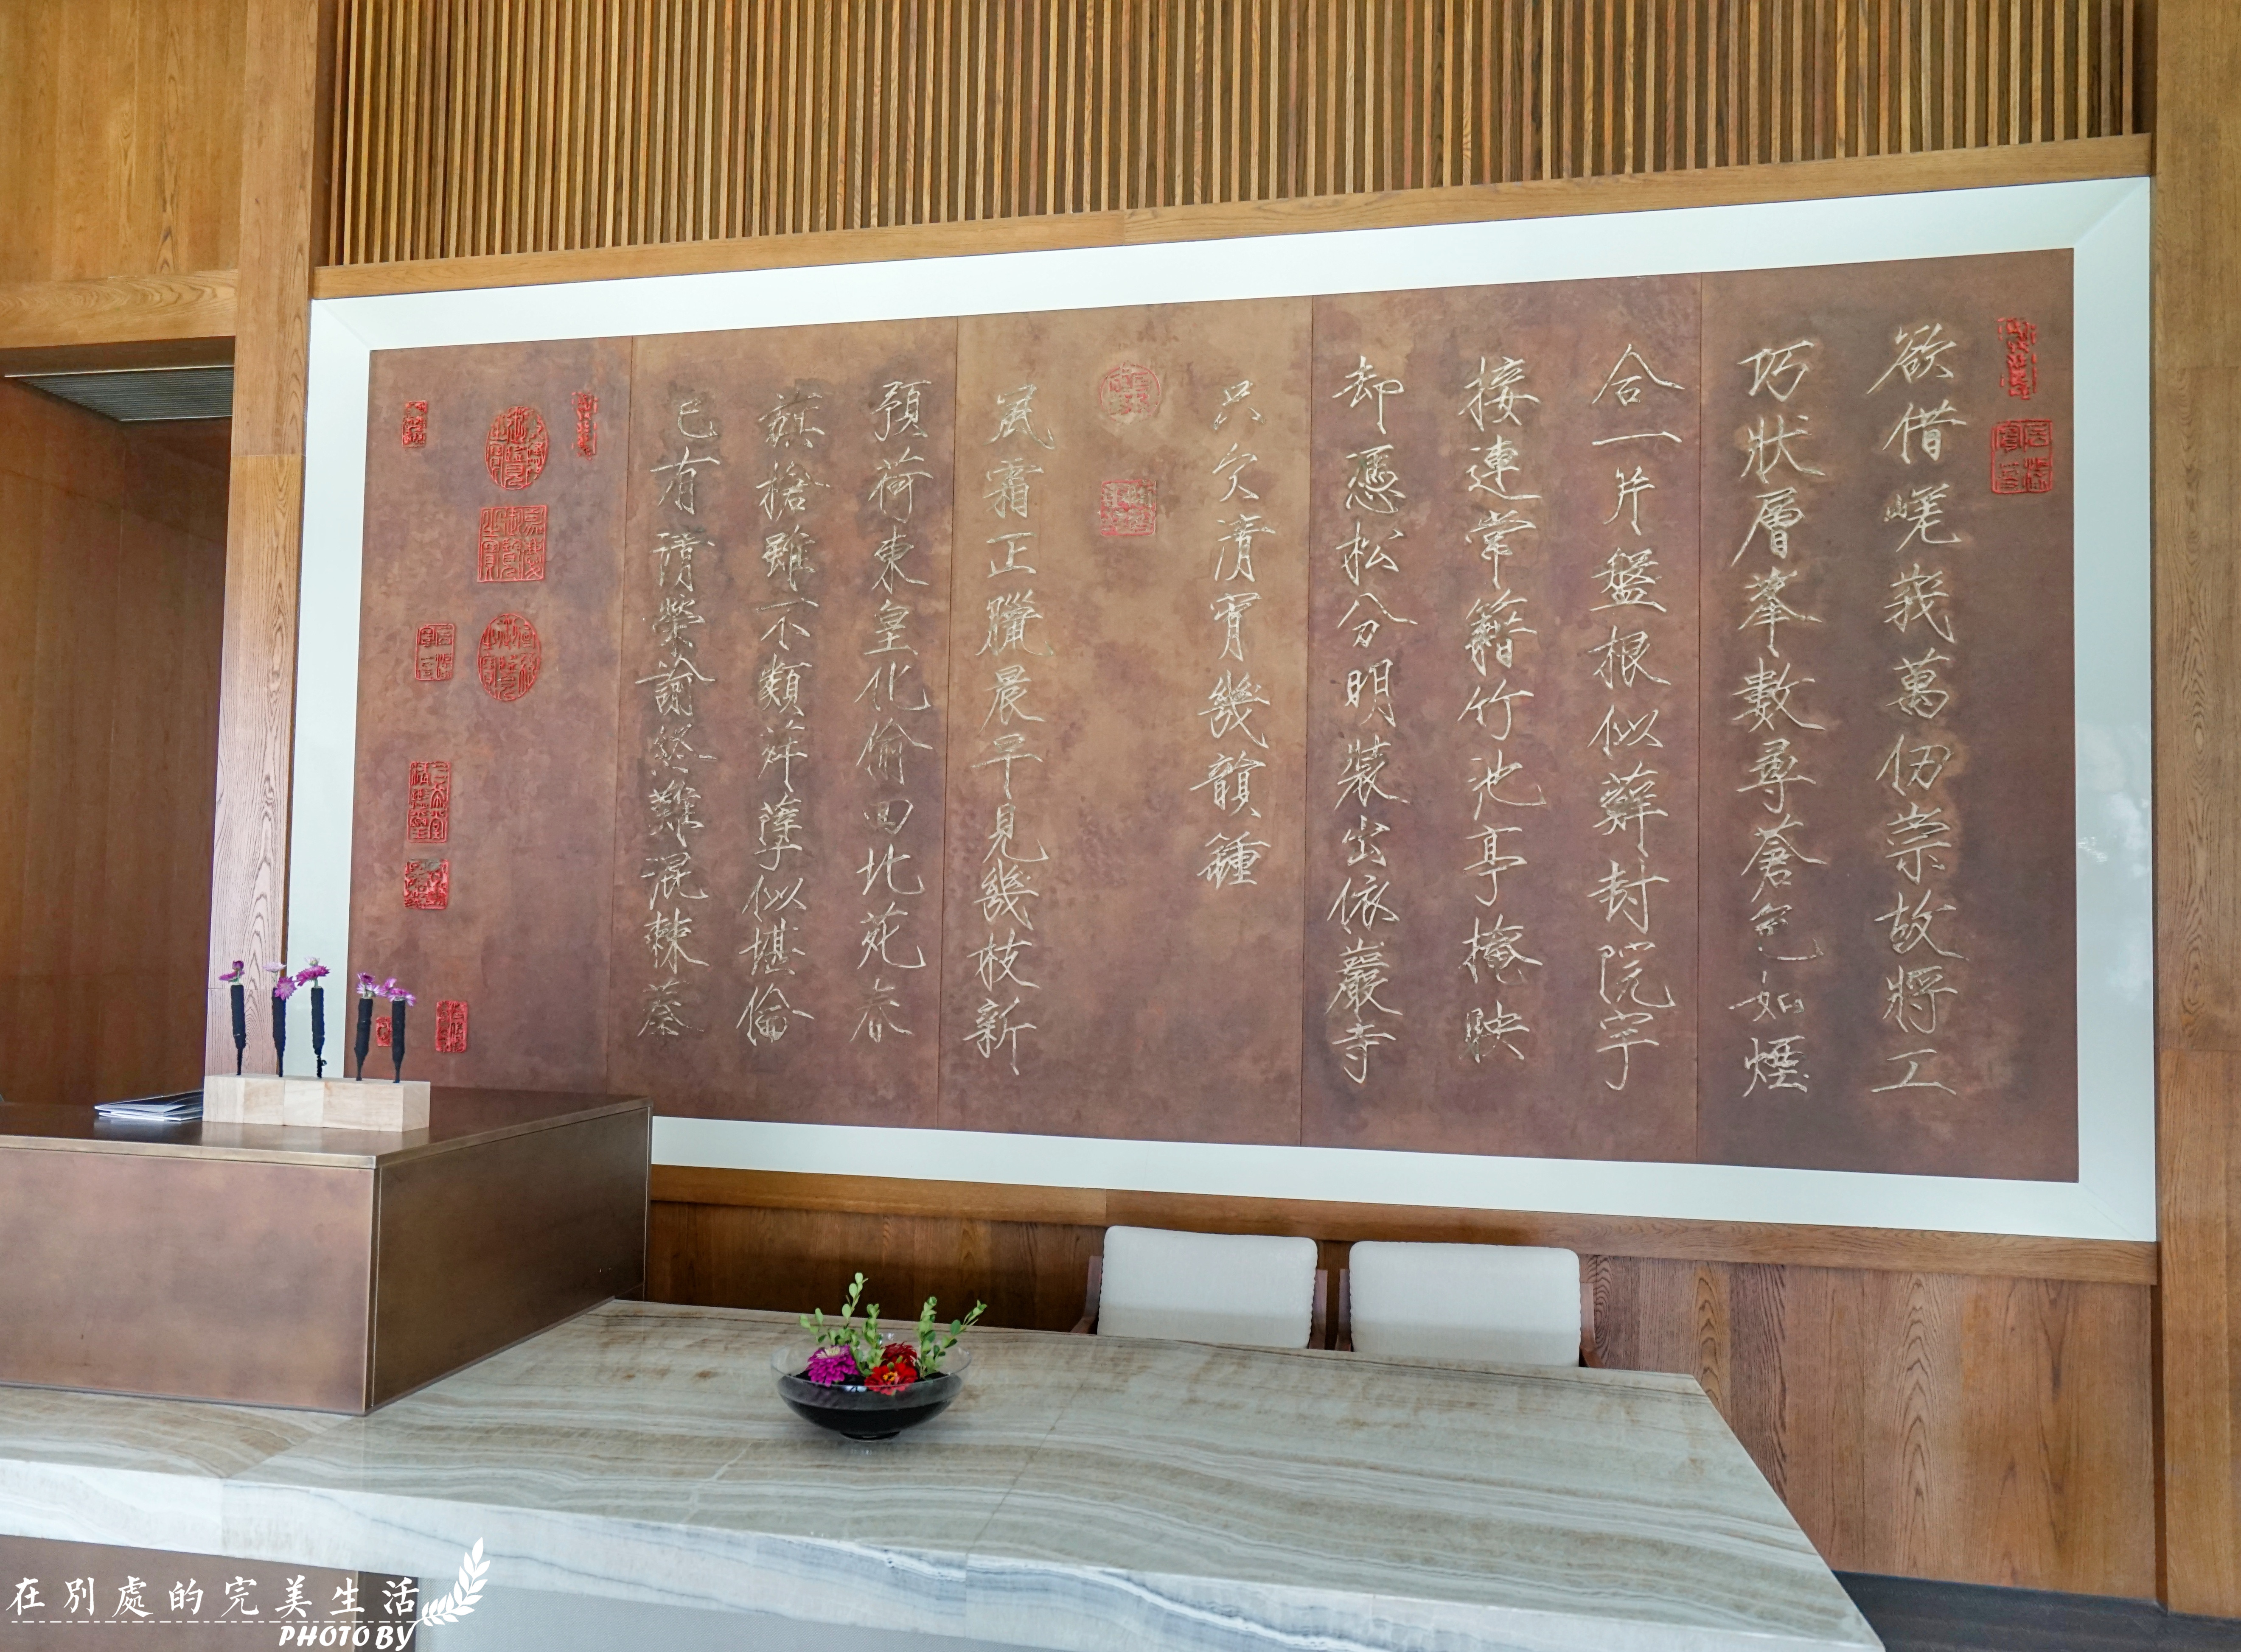 欲借嵯峩萬仞崇故將工
巧狀層峯數尋蒼色如煙
合一片盤根似蘚封院宇
接連常籍竹池亭掩映
却憑松分明裝出依巖寺
只欠清宵幾韻鍾
風霜正臘晨早見幾枝新
預荷東皇化偷回北苑春
旗搶雖不類荈孽似堪倫
已有清榮諭終難混棘蓁
在別處的完美生活
PHOTO BY